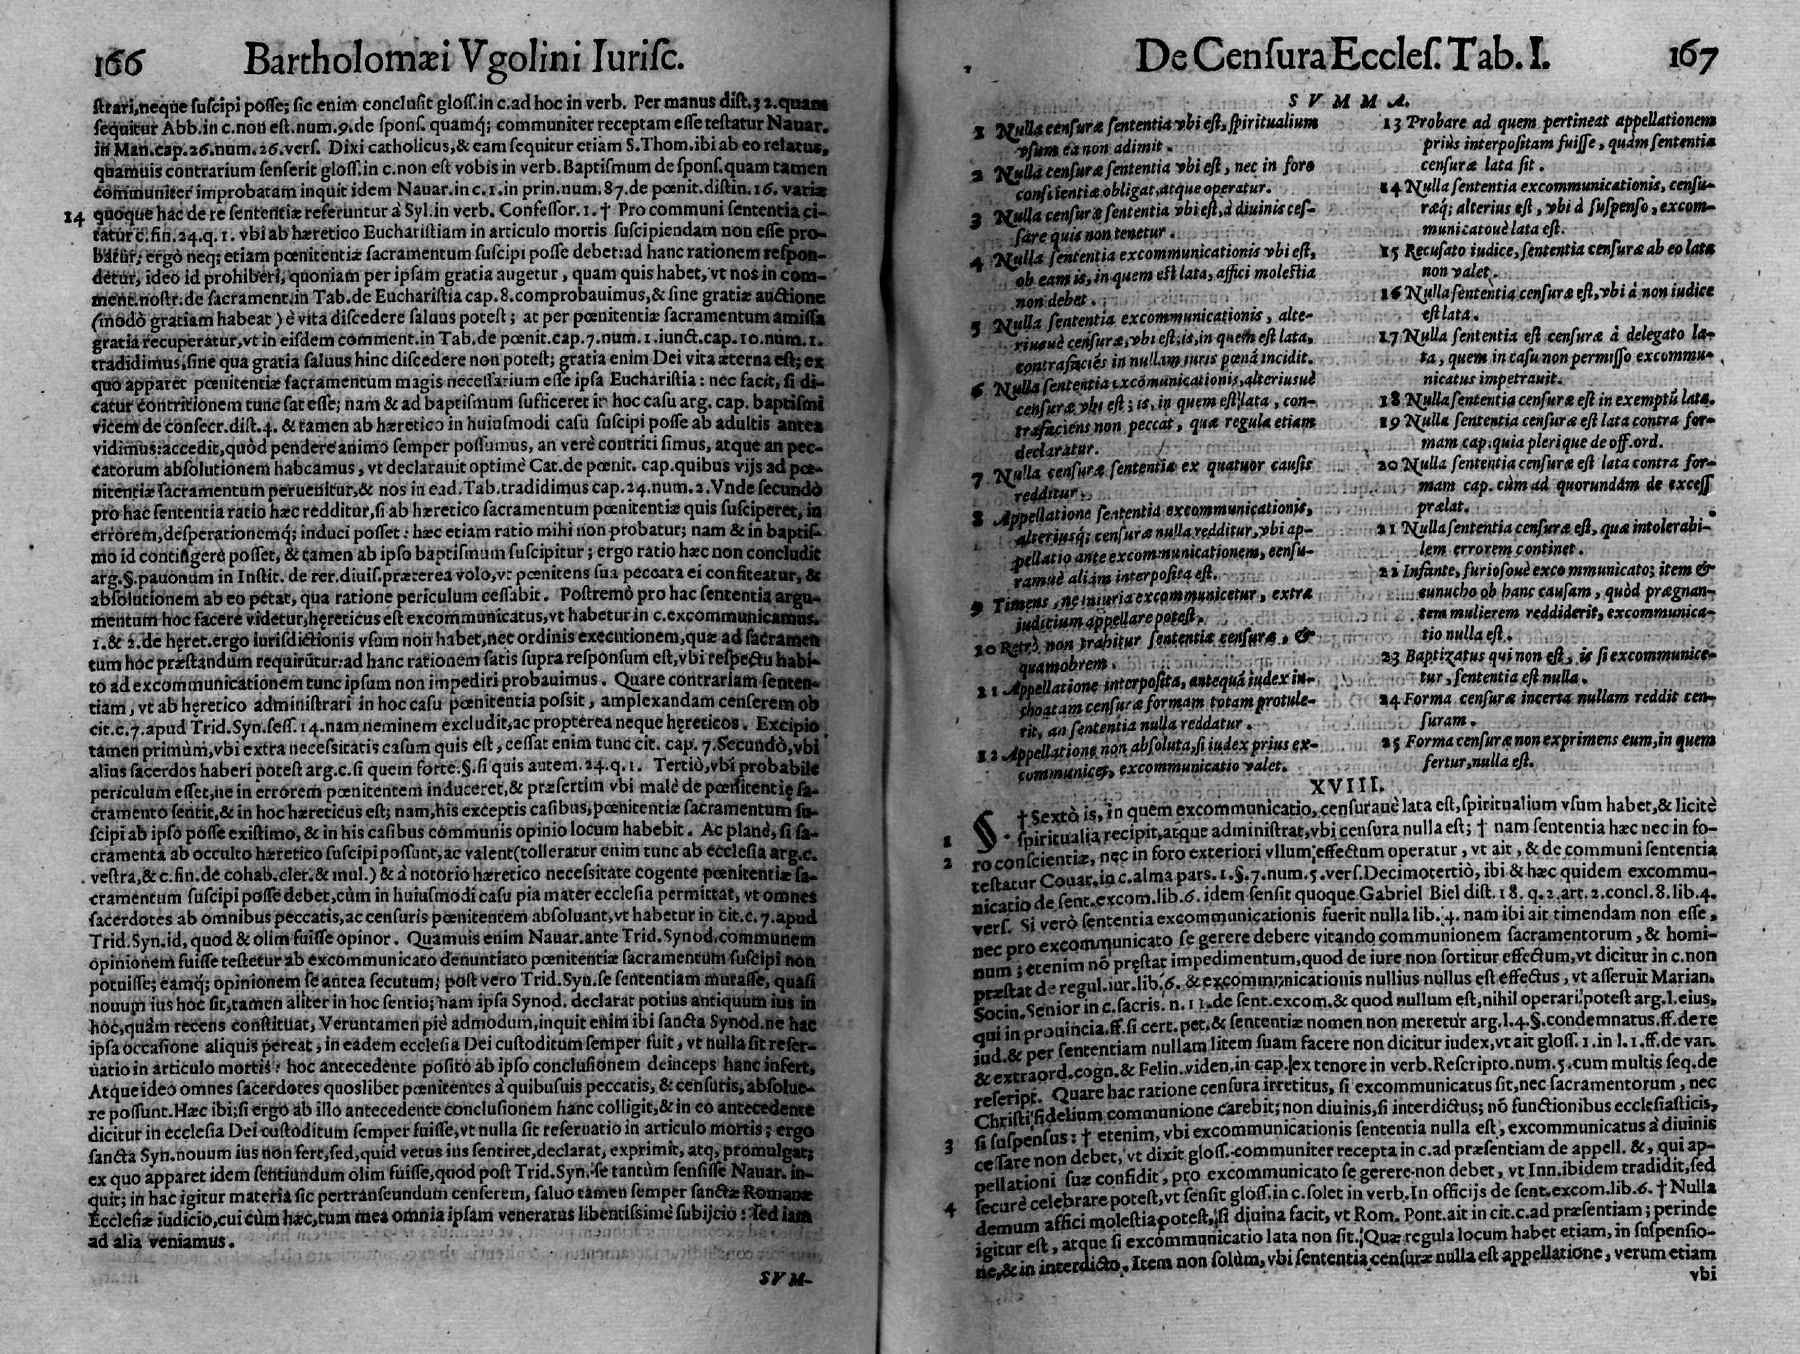 166 Bartholomæi Vgolini Iuriſc.
ſtrari,neque ſuſcipi poſſe; ſic enim concluſit gloſſ.in c.ad hoc in verb. Per manus diſt.32.quam
ſequitur Abb.in c.non eſt.num.9.de ſponſ. quamq́; communiter receptam eſſe teſtatur Nauar.
in Man.cap.26.num.26.verſ. Dixi catholicus,& eam ſequitur etiam S.Thom.ibi ab eo relatus,
quamuis contrarium ſenſerit gloſſ.in c.non eſt vobis in verb.Baptiſmum de ſponſ.quam tamen
communiter improbatam inquit idem Nauar.in c.1.in prin.num.87.de pœnit.diſtin.16. variæ
14 quoque hac de re ſententiæ referuntur à Syl.in verb. Confeſſor.1.† Pro communi ſententia ci-
tatur c.fin.24.q.1. vbi ab hæretico Euchariſtiam in articulo mortis ſuſcipiendam non eſſe pro-
batur; ergò neq; etiam pœnitentiæ ſacramentum ſuſcipi poſſe debet:ad hanc rationem reſpon-
detur, ideo id prohiberi, quoniam per ipſam gratia augetur, quam quis habet,vt nos in com-
ment.noſtr.de ſacrament.in Tab.de Euchariſtia cap.8.comprobauimus,& ſine gratiæ auctione
(modò gratiam habeat) è vita diſcedere ſaluus poteſt; at per pœnitentiæ ſacramentum amiſſa
gratia recuperatur,vt in eiſdem comment.in Tab.de pœnit.cap.7.num.1.iunct.cap.10.num.1.
tradidimus,ſine qua gratia ſaluus hinc diſcedere non poteſt; gratia enim Dei vita æterna eſt; ex
quo apparet pœnitentiæ ſacramentum magis neceſſarium eſſe ipſa Euchariſtia: nec facit, ſi di-
catur contritionem tunc ſat eſſe; nam & ad baptiſmum ſufficeret in hoc caſu arg. cap. baptiſmi
vicem de conſecr.diſt.4. & tamen ab hæretico in huiuſmodi caſu ſuſcipi poſſe ab adultis antea
vidimus:accedit,quòd pendere animo ſemper poſſumus, an verè contriti ſimus, atque an pec-
catorum abſolutionem habeamus, vt declarauit optimè Cat.de pœnit. cap.quibus vijs ad pœ-
nitentiæ ſacramentum peruenitur,& nos in ead.Tab.tradidimus cap.24.num.2.Vnde ſecundò
pro hac ſententia ratio hæc redditur,ſi ab hæretico ſacramentum pœnitentiæ quis ſuſciperet, in
errorem,deſperationemq́; induci poſſet: hæc etiam ratio mihi non probatur; nam & in baptiſ-
mo id contingere poſſet, & tamen ab ipſo baptiſmum ſuſcipitur; ergo ratio hæc non concludit
arg.§.pauonum in Inſtit. de rer.diuiſ.præterea volo,vt pœnitens ſua peccata ei confiteatur, &
abſolutionem ab eo petat, qua ratione periculum ceſſabit. Poſtremò pro hac ſententia argu-
mentum hoc facere videtur,hęreticus eſt excommunicatus,vt habetur in c.excommunicamus.
1.& 2.de hęret.ergo iurisdictionis vſum non habet,nec ordinis executionem,quæ ad ſacramen
tum hoc præſtandum requirũtur:ad hanc rationem ſatis ſupra reſponſum eſt,vbi reſpectu habi-
to ad excommunicationem tunc ipſum non impediri probauimus. Quare contrariam ſenten-
tiam, vt ab hęretico adminiſtrari in hoc caſu pœnitentia poſſit, amplexandam cenſerem ob
cit.c.7.apud Trid.Syn.ſeſſ.14.nam neminem excludit,ac propterea neque hęreticos. Excipio
tamen primùm,vbi extra neceſſitatis caſum quis eſt, ceſſat enim tunc cit. cap. 7.Secundò,vbi
alius ſacerdos haberi poteſt arg.c.ſi quem forte.§.ſi quis autem.24.q.1. Tertiò,vbi probabile
periculum eſſet,ne in errorem pœnitentem induceret,& præſertim vbi malè de pœnitentię ſa-
cramento ſentit,& in hoc hæreticus eſt; nam,his exceptis caſibus,pœnitentiæ ſacramentum ſu-
ſcipi ab ipſo poſſe exiſtimo, & in his caſibus communis opinio locum habebit. Ac planè, ſi ſa-
cramenta ab occulto hæretico ſuſcipi poſſunt,ac valent(tolleratur enim tunc ab eccleſia arg.c.
veſtra,& c.fin.de cohab.cler.& mul.) & à notorio hæretico neceſſitate cogente pœnitentiæ ſa-
cramentum ſuſcipi poſſe debet,cùm in huiuſmodi caſu pia mater eccleſia permittat, vt omnes
ſacerdotes ab omnibus peccatis,ac cenſuris pœnitentem abſoluant,vt habetur in cit.c.7.apud
Trid.Syn.id, quod & olim fuiſſe opinor. Quamuis enim Nauar.ante Trid.Synod.communem
opinionem fuiſſe teſtetur ab excommunicato denuntiato pœnitentiæ ſacramentum ſuſcipi non
potuiſſe; eamq́; opinionem ſe antea ſecutum; poſt vero Trid.Syn.ſe ſententiam mutaſſe, quaſi
nouum ius hoc ſit,tamen aliter in hoc ſentio; nam ipſa Synod. declarat potius antiquum ius in
hoc,quàm recens conſtituat, Veruntamen piè admodum,inquit enim ibi ſancta Synod.ne hac
ipſa occaſione aliquis pereat, in eadem eccleſia Dei cuſtoditum ſemper fuit, vt nulla ſit reſer-
uatio in articulo mortis: hoc antecedente poſito ab ipſo concluſionem deinceps hanc infert,
Atque ideo omnes ſacerdotes quoslibet pœnitentes à quibuſuis peccatis, & cenſuris, abſolue-
re poſſunt.Hæc ibi;ſi ergo ab illo antecedente concluſionem hanc colligit,& in eo antecedente
dicitur in eccleſia Dei cuſtoditum ſemper fuiſſe,vt nulla ſit reſeruatio in articulo mortis; ergo
ſancta Syn.nouum ius non fert,ſed,quid vetus ius ſentiret,declarat, exprimit, atq, promulgat;
ex quo apparet idem ſentiundum olim fuiſſe,quod poſt Trid.Syn. ſe tantùm ſenſiſſe Nauar. in-
quit; in hac igitur materia ſic pertranſeundum cenſerem, ſaluo tamen ſemper ſanctæ Romanæ
Eccleſiæ iudicio,cui cùm hæc,tum mea omnia ipſam veneratus libentiſſimè ſubijcio: ſed iam
ad alia veniamus.
SVM-
De Cenſura Eccleſ. Tab. I. 167
SVMMA.
1 Nulla cenſuræ ſententia vbi eſt, ſpiritualium
vſum ea non adimit.
2 Nulla cenſuræ ſententia vbi eſt, nec in foro
conſcientiæ obligat,atque operatur.
3 Nulla cenſuræ ſententia vbi eſt, à diuinis ceſ-
ſare quis non tenetur.
4 Nulla ſententia excommunicationis vbi eſt,
ob eam is, in quem eſt lata, affici moleſtia
non debet.
5 Nulla ſententia excommunicationis, alte-
riusuè cenſuræ,vbi eſt; is,in quem eſt lata,
contrafaciẽs in nullam iuris pœnã incidit.
6 Nulla ſententia excõmunicationis,alteriusuè
cenſuræ vbi eſt; is, in quem eſt lata, con-
trafaciens non peccat, quæ regula etiam
declaratur.
7 Nulla cenſuræ ſententia ex quatuor cauſis
redditur.
8 Appellatione ſententia excommunicationis,
alteriusq́; cenſuræ nulla redditur, vbi ap-
pellatio ante excommunicationem, cenſu-
ramuè aliam interpoſita eſt.
9 Timens, ne iniuria excommunicetur, extra
iudicium appellare poteſt.
10 Retrò non trahitur ſententia cenſuræ, &
quamobrem.
11 Appellatione interpoſita, antequã iudex in-
choatam cenſuræ formam totam protule-
rit, an ſententia nulla reddatur.
12 Appellatione non abſoluta,ſi iudex prius ex-
communicet, excommunicatio valet.
13 Probare ad quem pertineat appellationem
priùs interpoſitam fuiſſe, quàm ſententia
cenſuræ lata ſit.
14 Nulla ſententia excommunicationis, cenſu-
ræq́; alterius eſt, vbi à ſuſpenſo, excom-
municatouè lata eſt.
15 Recuſato iudice, ſententia cenſuræ ab eo lata
non valet.
16 Nulla ſententia cenſuræ eſt, vbi à non iudice
eſt lata.
17 Nulla ſententia eſt cenſuræ à delegato la-
ta, quem in caſu non permiſſo excommu-
nicatus impetrauit.
18 Nulla ſententia cenſuræ eſt in exemptũ lata.
19 Nulla ſententia cenſuræ eſt lata contra for-
mam cap.quia plerique de off.ord.
20 Nulla ſententia cenſuræ eſt lata contra for-
mam cap. cùm ad quorundam de exceſſ
prælat.
21 Nulla ſententia cenſuræ eſt, quæ intolerabi-
lem errorem continet.
22 Infante, furioſouè excommunicato; item &
eunucho ob hanc cauſam, quòd prægnan-
tem mulierem reddiderit, excommunica-
tio nulla eſt.
23 Baptizatus qui non eſt, is ſi excommunice-
tur, ſententia eſt nulla.
24 Forma cenſuræ incerta nullam reddit cen-
ſuram.
25 Forma cenſuræ non exprimens eum,in quem
fertur,nulla eſt.
XVIII.
1 § † Sextò is, in quem excommunicatio, cenſurauè lata eſt,ſpiritualium vſum habet,& licitè
ſpiritualia recipit,atque adminiſtrat,vbi cenſura nulla eſt; † nam ſententia hæc nec in fo-
2 ro conſcientiæ, nec in foro exteriori vllum effectum operatur, vt ait, & de communi ſententia
teſtatur Couar.in c.alma pars.1.§.7.num.5.verſ.Decimotertiò, ibi & hæc quidem excommu-
nicatio de ſent.excom.lib.6. idem ſenſit quoque Gabriel Biel diſt.18. q.2.art.2.concl.8.lib.4.
verſ. Si verò ſententia excommunicationis fuerit nulla lib.4. nam ibi ait timendam non eſſe,
nec pro excommunicato ſe gerere debere vitando communionem ſacramentorum, & homi-
num; etenim nõ pręſtat impedimentum,quod de iure non ſortitur effectum,vt dicitur in c.non
præſtat de regul.iur.lib.6. & excommunicationis nullius nullus eſt effectus, vt aſſeruit Marian.
Socin.Senior in c.ſacris. n.11.de ſent.excom.& quod nullum eſt,nihil operari poteſt arg.l.eius,
qui in prouincia.ff.ſi cert.pet.& ſententiæ nomen non meretur arg.l.4.§.condemnatus.ff.de re
iud.& per ſententiam nullam litem ſuam facere non dicitur iudex,vt ait gloſſ.1.in l.1.ff.de var.
& extraord.cogn.& Felin.viden.in cap.ex tenore in verb.Reſcripto.num.5.cum multis ſeq.de
reſcript. Quare hac ratione cenſura irretitus, ſi excommunicatus ſit,nec ſacramentorum, nec
Chriſti fidelium communione carebit; non diuinis,ſi interdictus; nõ functionibus eccleſiaſticis,
3 ſi ſuſpenſus: † etenim, vbi excommunicationis ſententia nulla eſt, excommunicatus à diuinis
ceſſare non debet, vt dixit gloſſ.communiter recepta in c.ad præſentiam de appell. &, qui ap-
pellationi ſuæ confidit, pro excommunicato ſe gerere non debet, vt Inn.ibidem tradidit,ſed
4 ſecurè celebrare poteſt,vt ſenſit gloſſ.in c.ſolet in verb.In officijs de ſent.excom.lib.6. † Nulla
demum affici moleſtia poteſt, ſi diuina facit, vt Rom. Pont.ait in cit.c.ad præſentiam; perinde
igitur eſt, atque ſi excommunicatio lata non ſit. Quæ regula locum habet etiam, in ſuſpenſio-
ne,& in interdicto. Item non ſolùm, vbi ſententia cenſuræ nulla eſt appellatione, verum etiam
vbi